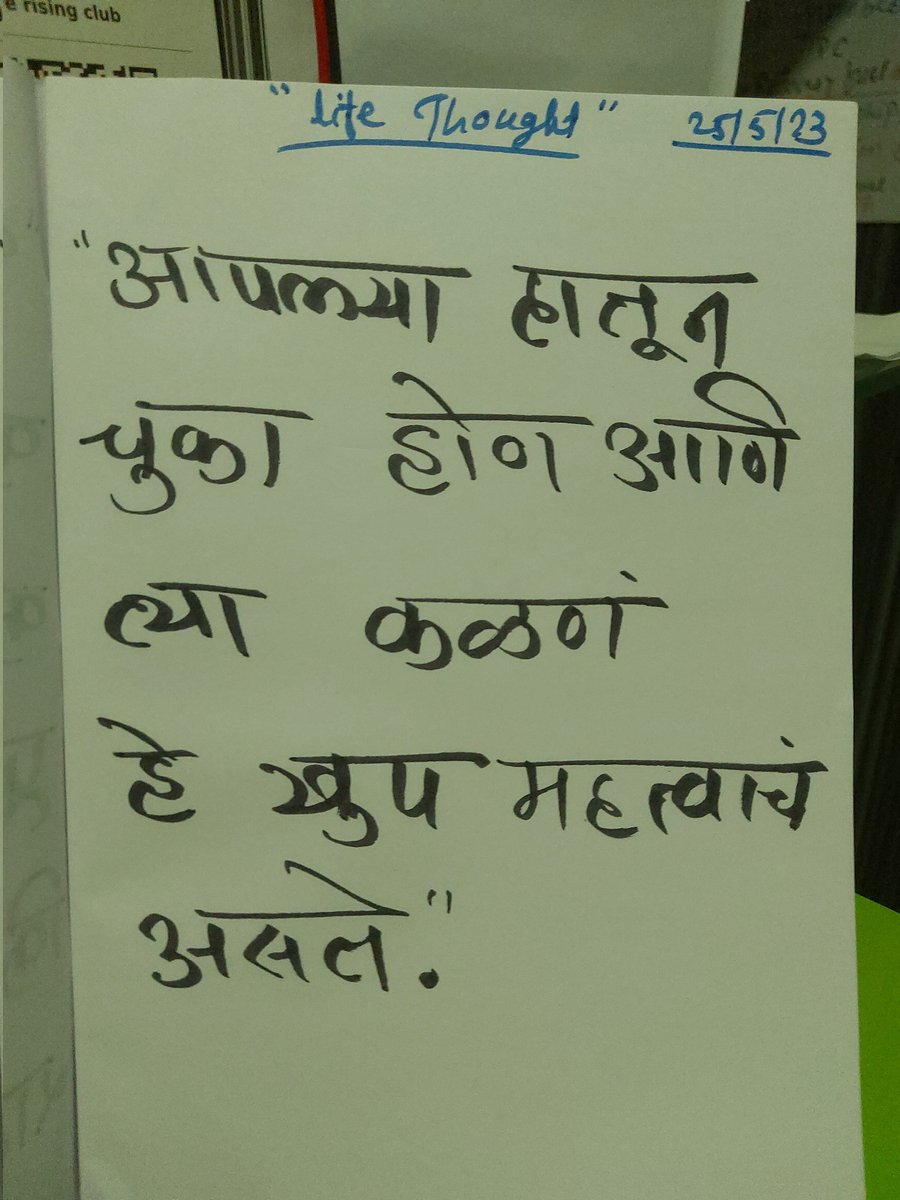 e rising club
"life Thought" 25/5/23
"आपल्या हातून
चुका होण आणि
त्या कळणं
हे खुप महत्वाचं
असते."